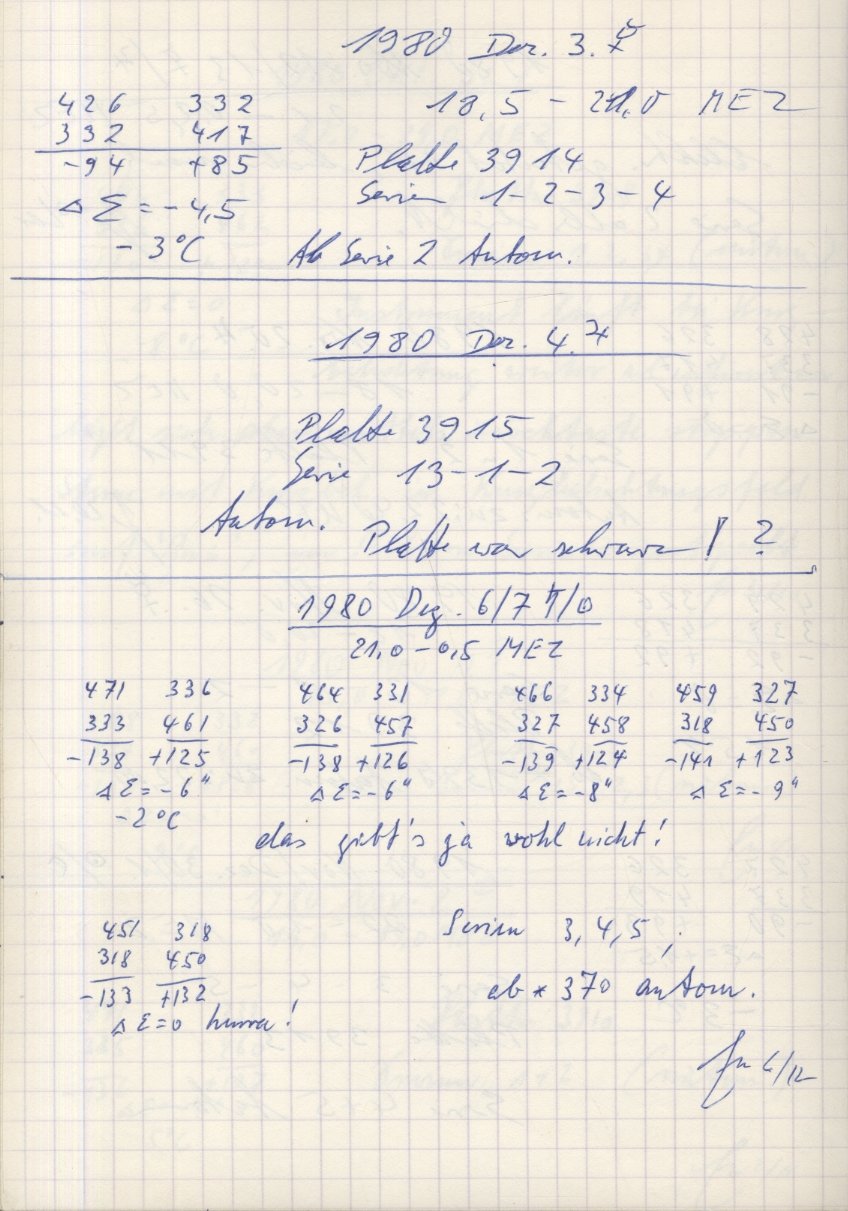 1980 Dez. 3.
426 332 18,5 – 21,0 MEZ
332 417
-94 +85 Platte 3914
Serien 1-2-3-4
Δ Σ = -4,5
-3°C Ab Serie 2 Autom.
1980 Dez. 4. ♃
Platte 3915
Serie 13-1-2
Autom.
Platte war schwarz! ?
1980 Dez. 6/7 ♄/⊙
21,0 – 0,5 MEZ
471 336 464 331 466 334 459 327
333 461 326 457 327 458 318 450
-138 +125 -138 +126 -139 +124 -141 +123
Δ Σ = -6" Δ Σ = -6" Δ Σ = -8" Δ Σ = -9"
-2°C
das gibt's ja wohl nicht!
451 318 Serien 3, 4, 5,
318 450
-133 +132 ab * 370 autom.
Δ Σ = 0 hurra!
6/12